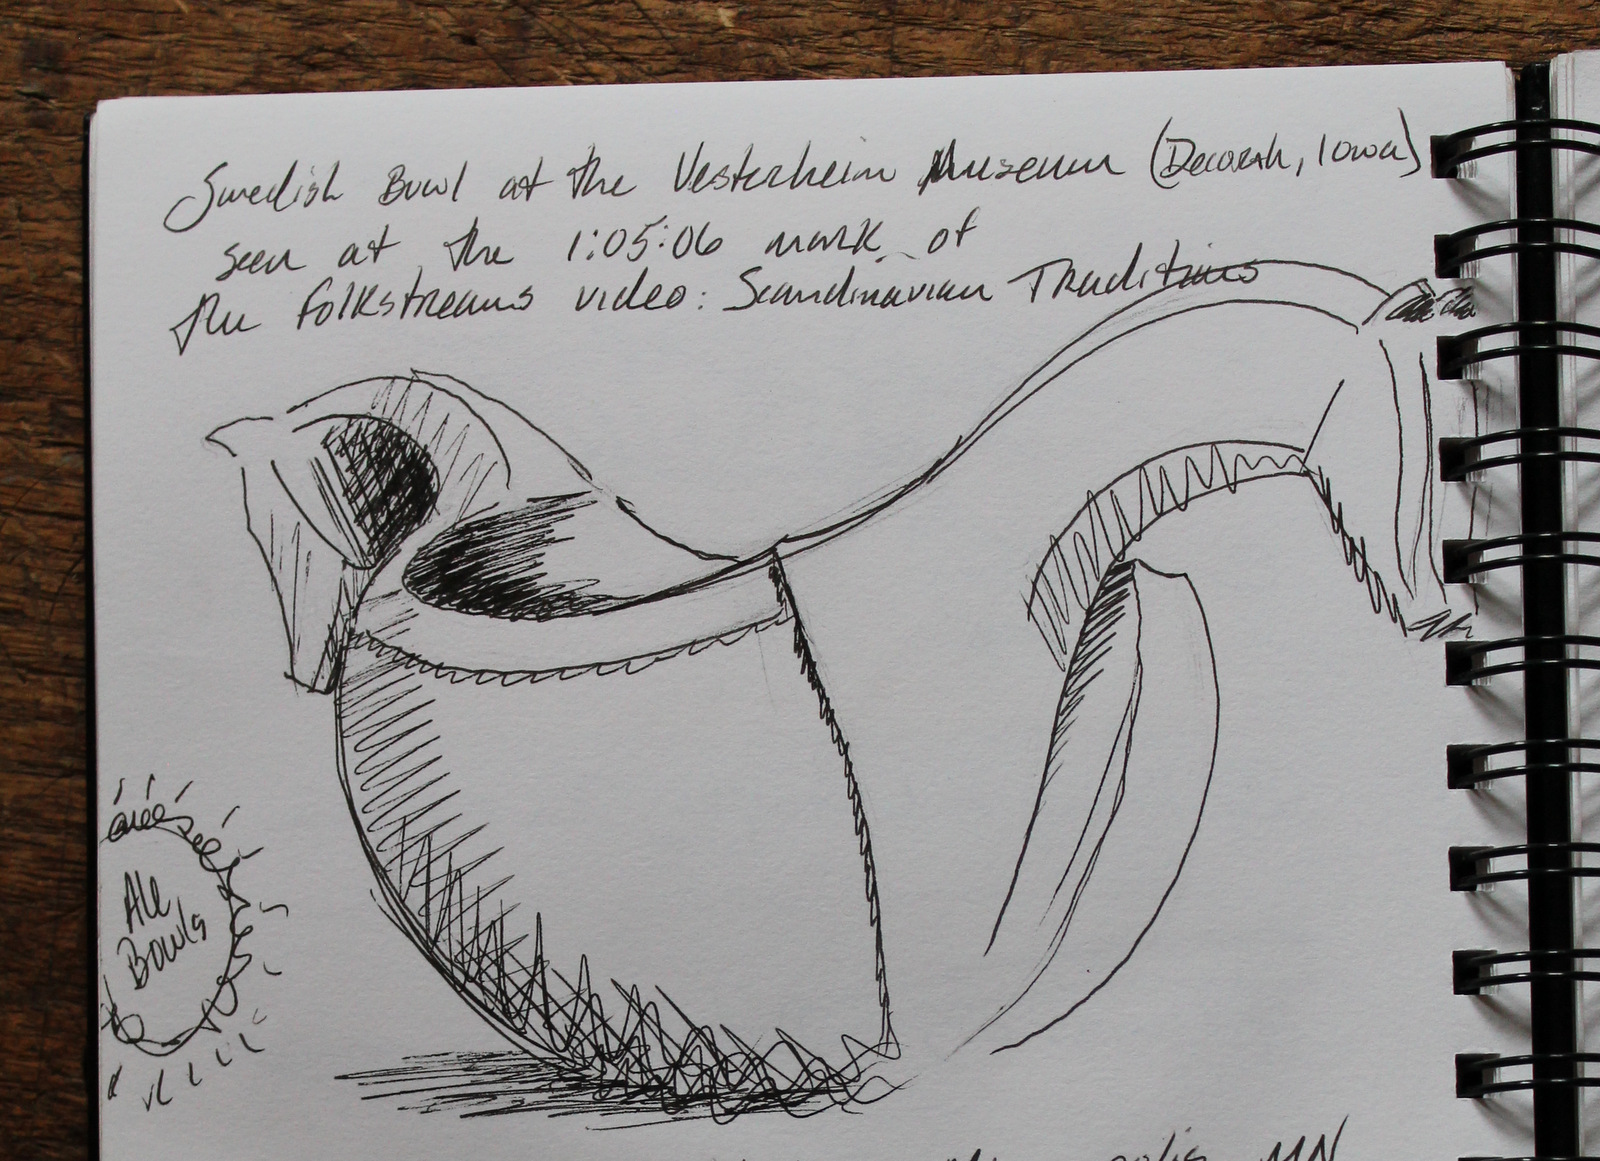 Swedish Bowl at the Vesterheim Museum (Decorah, Iowa)
seen at the 1:05:06 mark of
the folkstreams video: Scandinavian Traditions
Ale
Bowls
MN